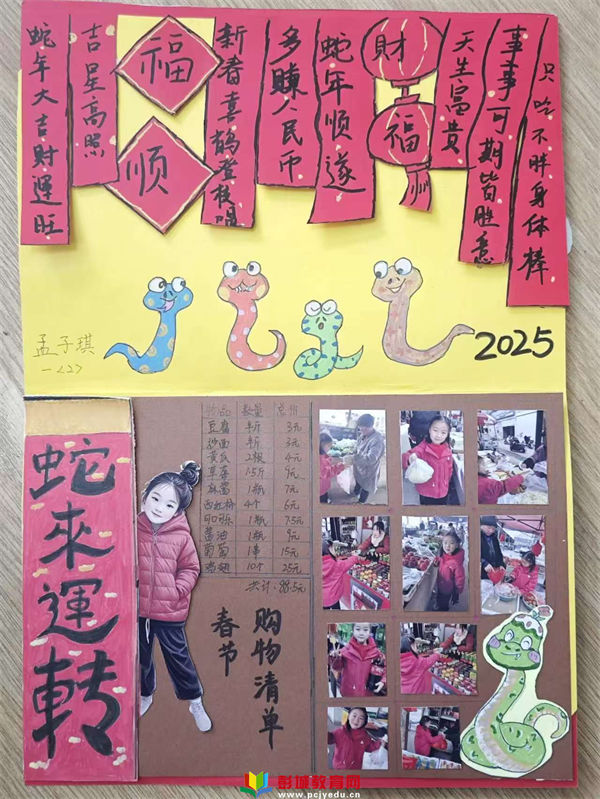 蛇年大吉財運旺
吉星高照
福
顺
新春喜鹊登枝唱
多賺人民币
蛇年顺遂
財
福
天生富贵
事事可期皆胜意
只吃不胖身体棒
孟子琪
一<2>
2025
蛇來運转
物品 数量 总价
豆腐 半斤 3元
半斤 3元
黄瓜 2根 4元
草莓 1.5斤 9元
麻酱 1瓶 7元
西红柿 4个 6元
1瓶 7.5元
酱油 1瓶 9元
葡萄 1串 15元
鸡翅 10个 25元
共计:88.5元
春节
购物清单
彭城教育网
www.pcjyedu.cn